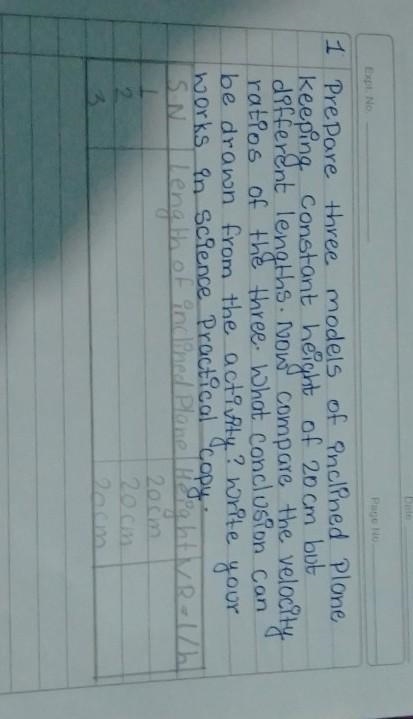 Date
Expt. No.
Page No.
1 Prepare three models of inclined plane
keeping constant height of 20 cm but
different lengths. Now compare the velocity
ratios of the three. What conclusion can
be drawn from the activity? Write your
works in science Practical copy.
S.N Length of inclined Plane Height VR=l/h
1 20cm
2 20cm
3 20cm